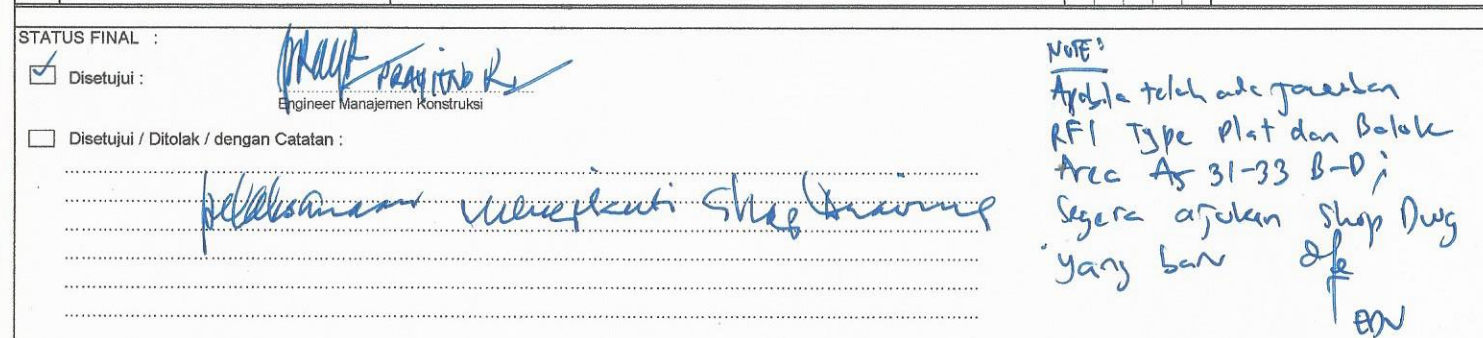 STATUS FINAL :
Disetujui :
PRAYITNO K
Engineer Manajemen Konstruksi
Disetujui / Ditolak / dengan Catatan :
pelaksanaan mengikuti Shop Drawing
NOTE:
Apabila telah ada jawaban
RFI Type Plat dan Balok
Area As 31-33 B-D ;
Segera ajukan Shop Dwg
yang baru
EDN